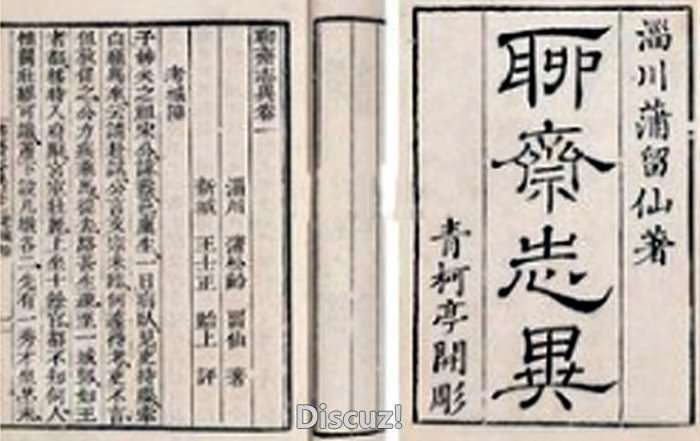 淄川蒲留仙著
聊齋志異
青柯亭開彫
聊齋志異卷一
淄川 蒲松齡 留仙 著
新城 王士正 貽上 評
考城隍
予姊夫之祖宋公諱燾邑廩生一日病臥見吏持牒牽
白顛馬來云請赴試公言文宗未臨何遽得考吏不言
但敦促之公力疾乘馬從去路甚生疎至一城郭如王
者都移時入府廨宮室壯麗上坐十餘官都不知何人
惟關壯繆可識簷下設几墩各二先有一秀才坐其末
Discuz!